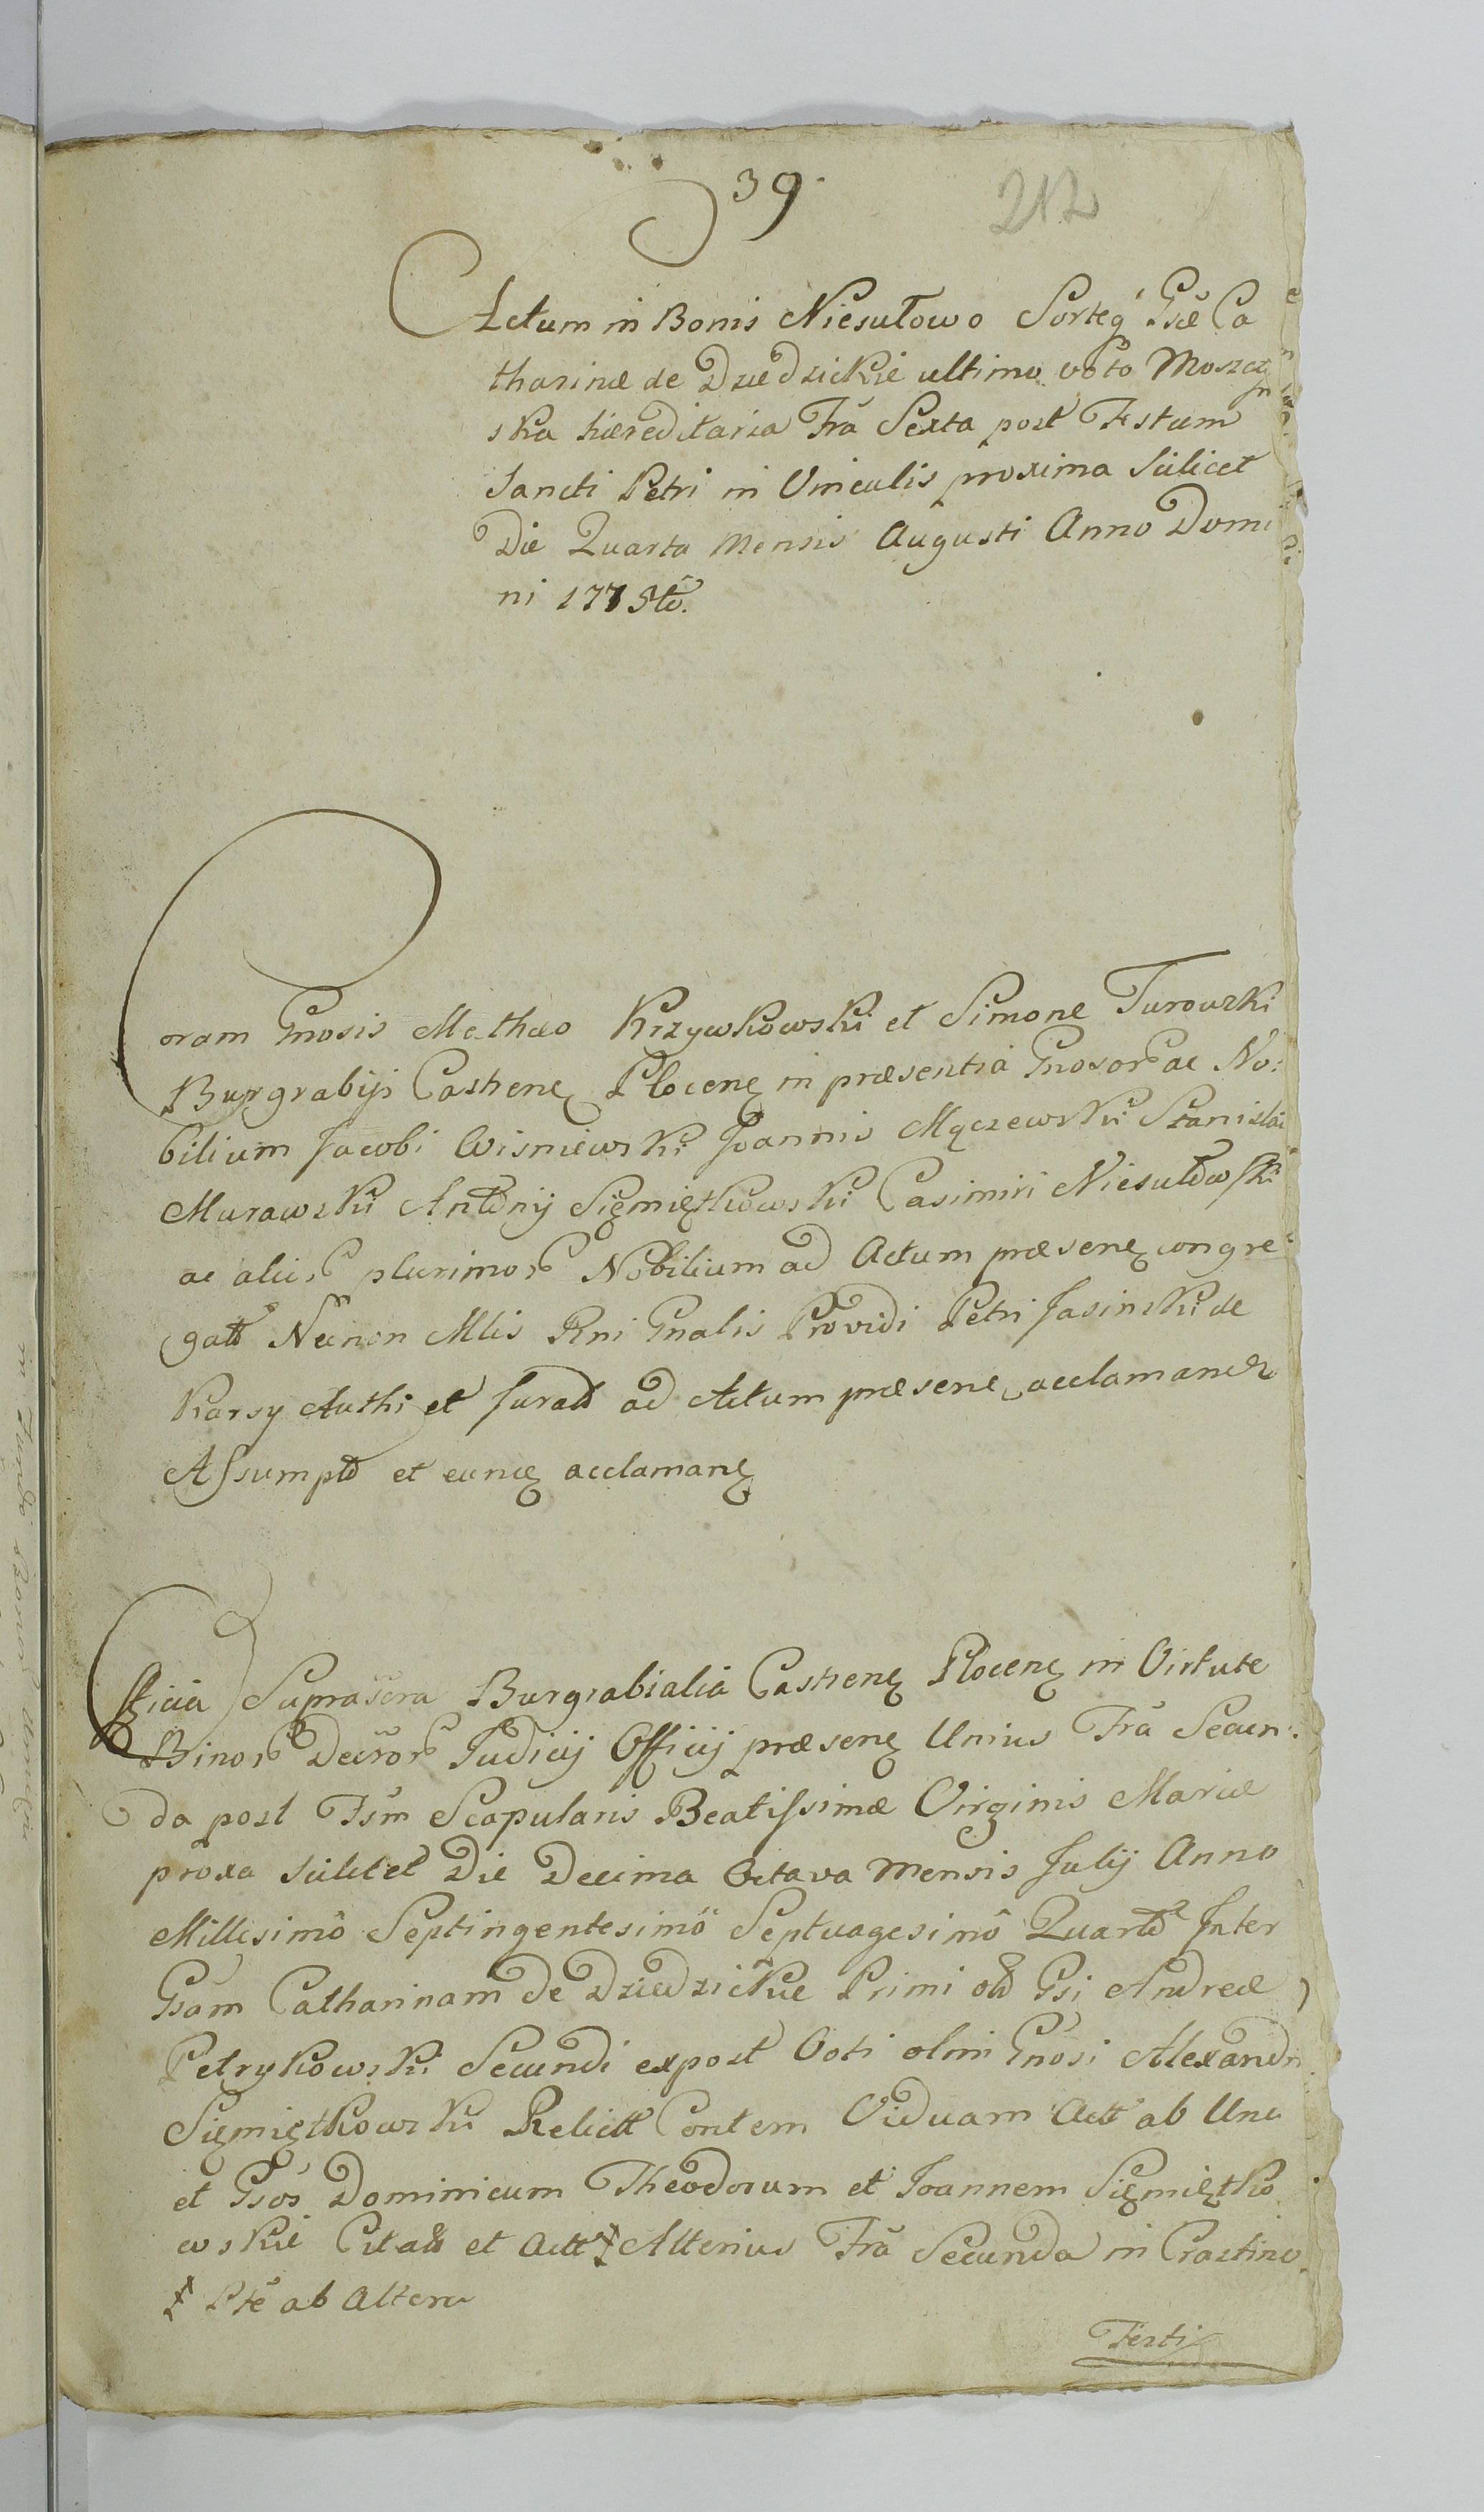 39.
212
Actum in Bonis Niesułowo Sorteq Gsæ Ca
tharinæ de Dziedzickie ultimo voto Moszczyn
ska hæreditaria Fra Sexta post Festum
Sancti Petri in Vinculis proxima Scilicet
Die Quarta Mensis Augusti Anno Domi
ni 1775to.
Coram Gnosis Mathæo Krzywkowski et Simone Turowski
Burgrabijs Castrens Plocens in præsentia Gnosor ac No:
bilium Jacobi Wisniewski Joannis Mączewski Stanislai
Murawski Antonij Siemiątkowski Casimiri Niesułowski
ac alior plurimor Nobilium ad Actum præsens congre
gat Necnon Mlis Rni Gnalis Providi Petri Jasinski de
Karsy Authi et Jurat ad Actum præsens acclamand
Assumpto et eunde acclamans
Officia Suprascra Burgrabialia Castrens Plocens in Virtute
Binor Decror Judicij Officij præsens Unius Fra Secun:
da post Fsm Scapularis Beatissimæ Virginis Mariæ
proxa Scilicet Die Decima Octava Mensis Julij Anno
Millesimo Septingentesimo Septuagesimo Quarto Inter
Gsam Catharinam de Dziedzickie Primi olo Gsi Andreæ
Petrykowski Secundi expost Voti olim Gnosi Alexandri
Siemiątkowski Relict Contem Viduam Act ab Una
et Gsos Dominicum Theodorum et Joannem Siemiątko
wskie Citato et Act ⸸ Alterius Fra Secunda in Crastino
⸸ Pte ab Altera
Festi